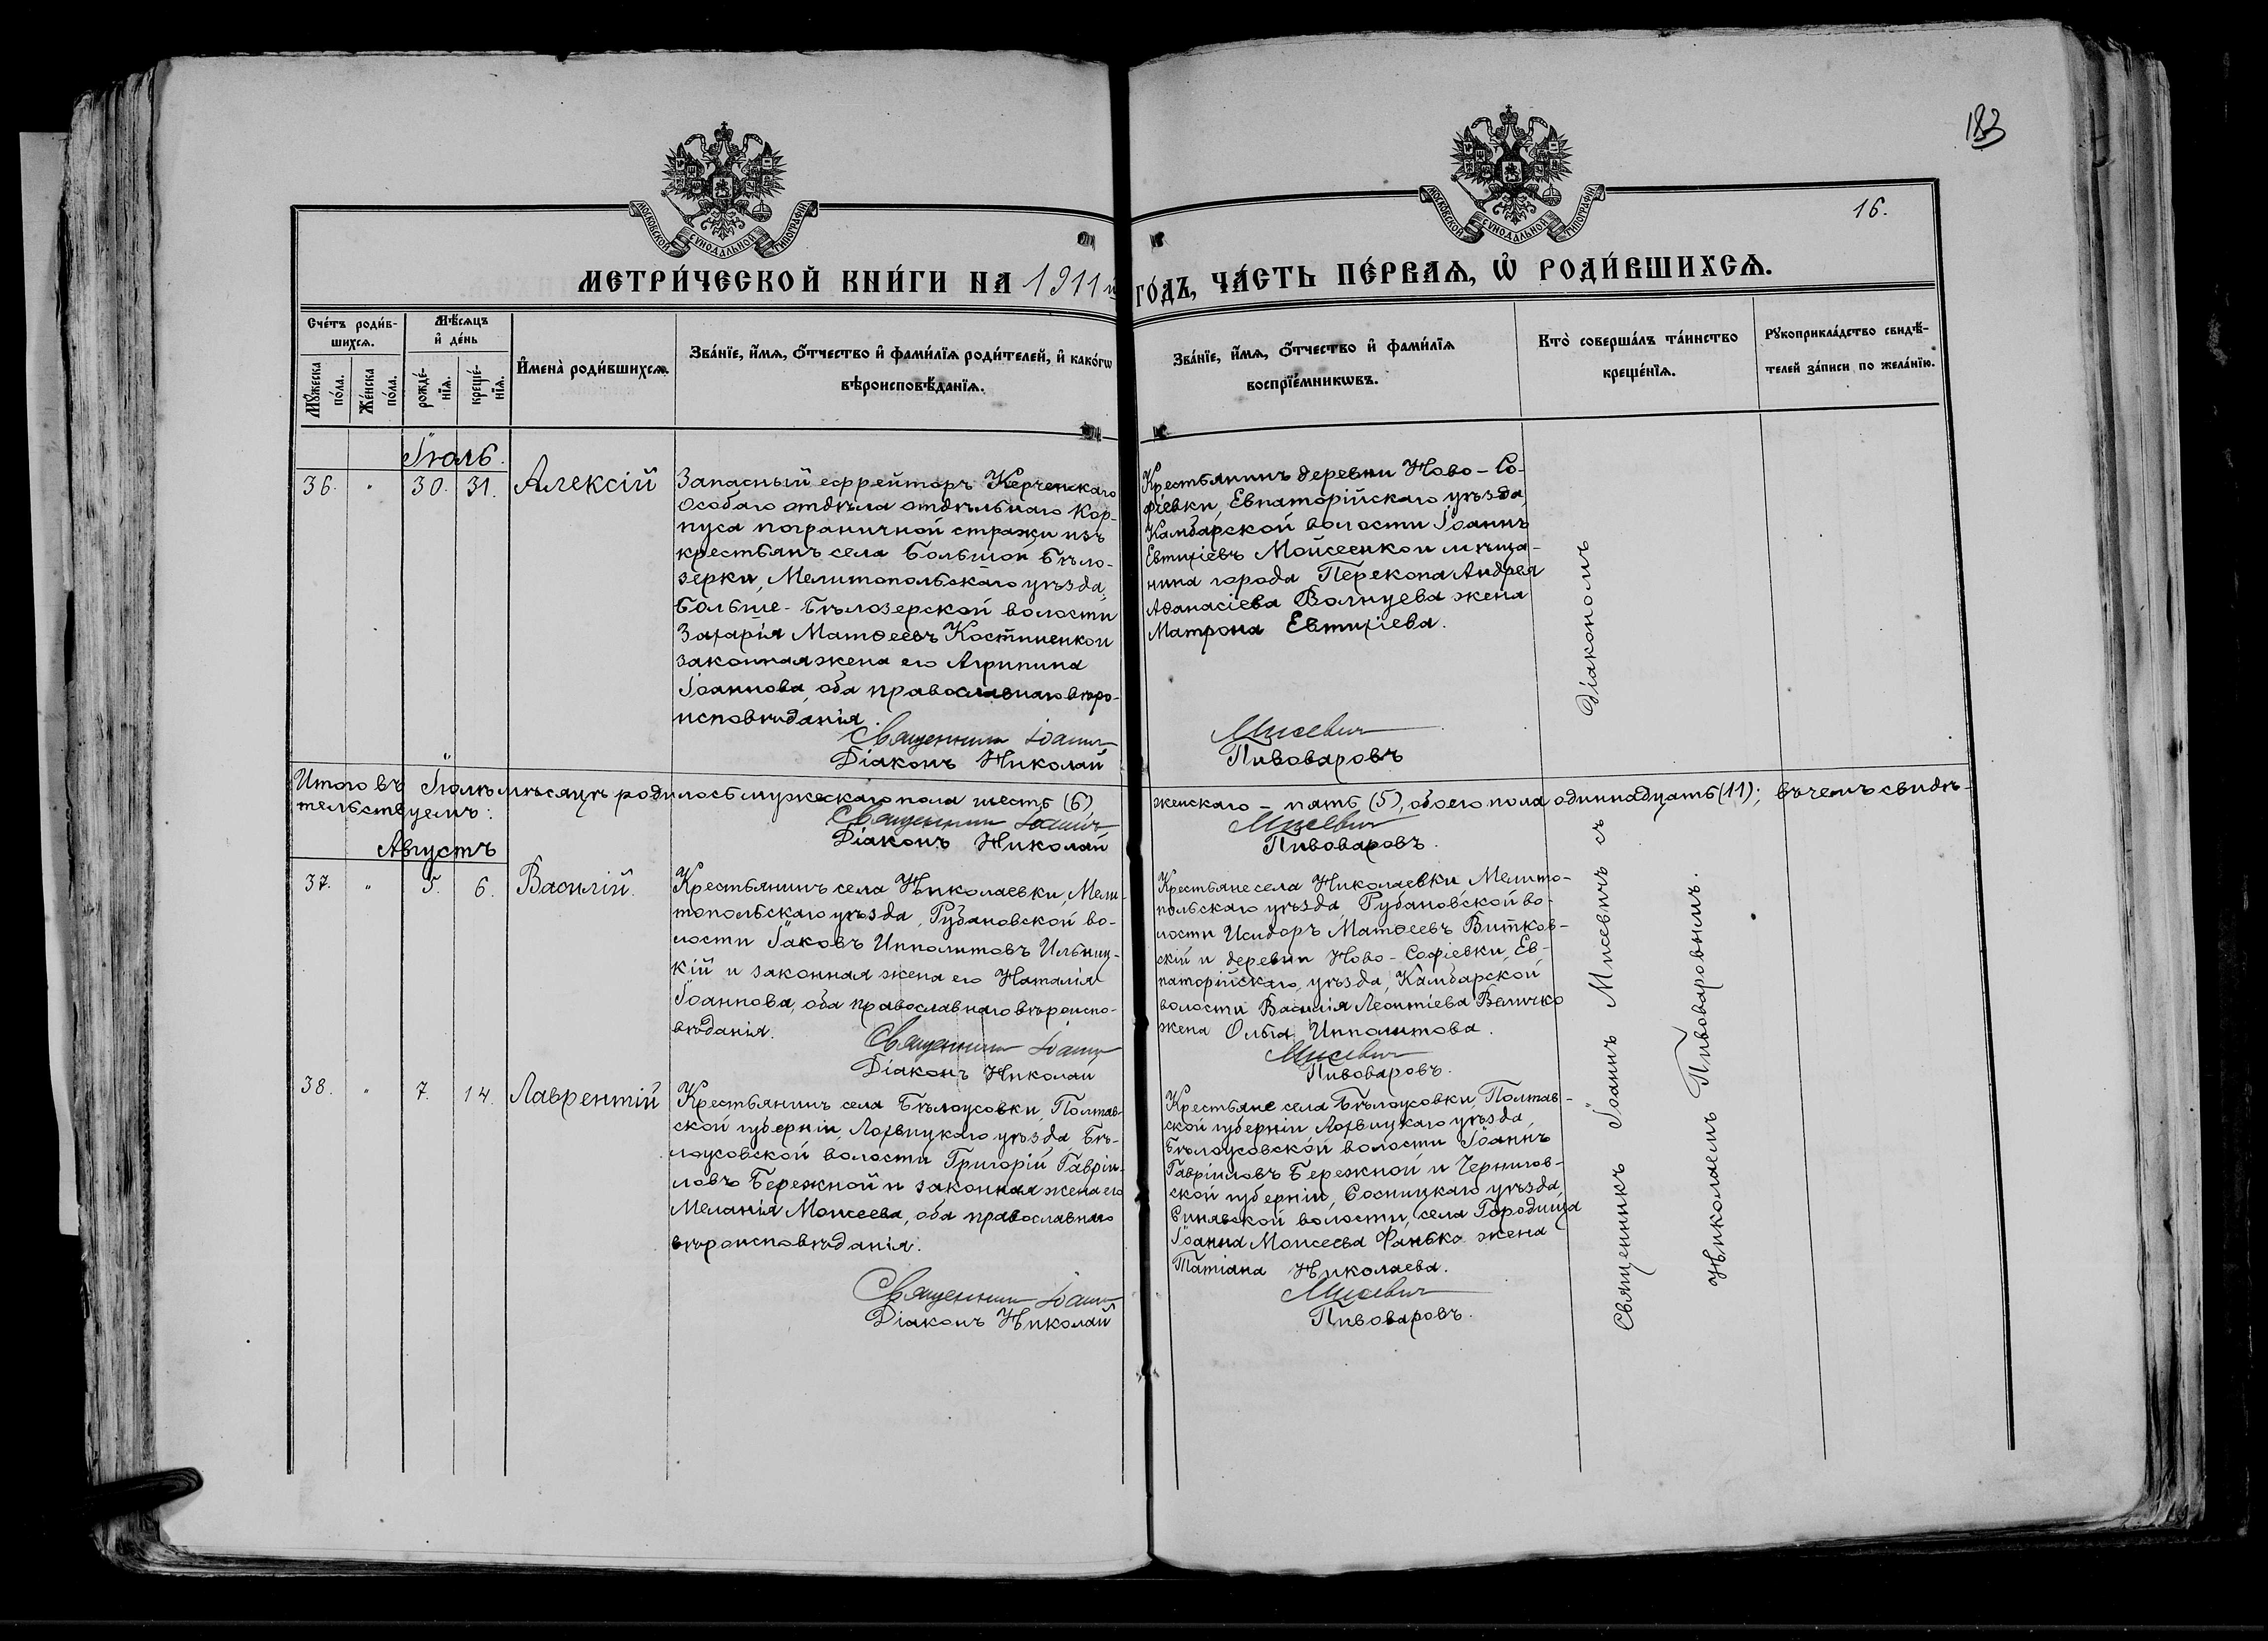 183
16.
МОСКОВСКОЙ СѴНОДАЛЬНОЙ ТИПОГРАФІИ
МОСКОВСКОЙ СѴНОДАЛЬНОЙ ТИПОГРАФІИ
МЕТРИ́ЧЕСКОЙ КНИ́ГИ НА 1911й ГО́ДЪ, ЧА́СТЬ ПЕ́РВАѦ, Ѡ҆ РОДИ́ВШИХСѦ.
Сче́тъ роди́в-
шихсѧ.
Мꙋ́жеска по́ла.
Же́нска по́ла.
Мѣ́сѧцъ
и҆ де́нь
рожде́-
нїѧ.
креще́-
нїѧ.
И҆мена̀ роди́вшихсѧ.
Зва́нїе, и҆́мѧ, ѻ҆́тчество и҆ фами́лїѧ роди́телей, и҆ како́гѡ
вѣроисповѣ́данїѧ.
Зва́нїе, и҆́мѧ, ѻ҆́тчество и҆ фами́лїѧ
воспрїе́мникѡвъ.
Кто̀ соверша́лъ та́инство
креще́нїѧ.
Рꙋкоприкла́дство свидѣ́-
телей за́писи по жела́нїю.
Іюль.
36. " 30. 31. Алексій
Запасный ефрейторъ Керченскаго
Особаго отдѣла отдѣльнаго Кор-
пуса пограничной стражи изъ
крестьянъ села Большой Бѣло-
зерки, Мелитопольскаго уѣзда,
Больше-Бѣлозерской волости
Захарія Матѳеевъ Костиненко и
законная жена его Агрипина
Іоаннова, оба православнаго вѣро-
исповѣданія.
Священникъ Іоаннъ
Діаконъ Николай
Крестьянинъ деревни Ново-Со-
фіевки, Евпаторійскаго уѣзда,
Камбарской волости Іоаннъ
Евтихіевъ Мойсеенко и мѣща-
нина города Перекопа Андрея
Аѳанасіева Волнуева жена
Матрона Евтихіева.
Мисевичъ
Пивоваровъ
Итого въ Іюлѣ мѣсяцѣ родилось мужескаго пола шесть (6) женскаго – пять (5), обоего пола одиннадцать (11); въ чемъ свидѣ-
тельствуемъ:
Священникъ Іоаннъ Мисевичъ
Діаконъ Николай Пивоваровъ.
Августъ
37. " 5. 6. Василій.
Крестьянинъ села Николаевки, Мели-
топольскаго уѣзда, Рубановской во-
лости Іаковъ Ипполитовъ Ильниц-
кій и законная жена его Наталія
Іоаннова, оба православнаго вѣроиспо-
вѣданія.
Священникъ Іоаннъ
Діаконъ Николай
Крестьяне села Николаевки Мелито-
польскаго уѣзда, Рубановской во-
лости Исидоръ Матѳеевъ Витков-
скій и деревни Ново-Софіевки, Ев-
паторійскаго, уѣзда, Камбарской
волости Василія Леонтіева Величко
жена Ольга Ипполитова.
Мисевичъ
Пивоваровъ.
38. " 7. 14. Лаврентій
Крестьянинъ села Бѣлоусовки, Полтав-
ской губерніи, Лохвицкаго уѣзда Бѣ-
лоусовской волости Григорій Гавріи-
ловъ Бережной и законная жена его
Меланія Моисеева, оба православнаго
вѣроисповѣданія.
Священникъ Іоаннъ
Діаконъ Николай
Крестьяне села Бѣлоусовки, Полтав-
ской губерніи Лохвицкаго уѣзда,
Бѣлоусовской волости Іоаннъ
Гавріиловъ Бережной и Чернигов-
ской губерніи, Сосницкаго уѣзда,
Синявской волости, села Городища
Іоанна Моисеева Фанько жена
Татіана Николаева.
Мисевичъ
Пивоваровъ.
Священникъ Іоаннъ Мисевичъ съ Діакономъ
Николаемъ Пивоваровымъ.